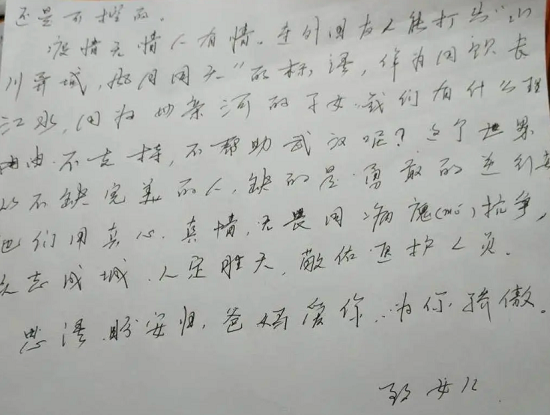 还是可控的。
疫情无情人有情。连外国友人能打出“山
川异域，风月同天”的标语，作为同饮长
江水，同为 河的子女，我们有什么理
由不支持，不帮助武汉呢？这个世界
从不缺完美的人，缺的是勇敢的逆行者
他们用真心、真情，无畏同病魔(mó)抗争，
众志成城，人定胜天，敬佑医护人员。
思 盼安归，爸妈爱你，为你骄傲。
致女儿